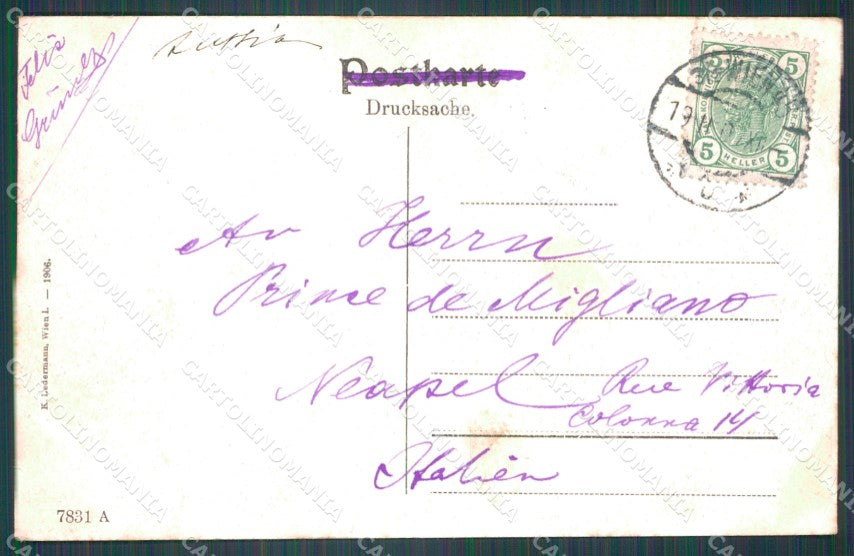 Austria
Postkarte
Drucksache.
5 5
5 HELLER 5
WIEN
An Herrn
Prince de Migliano
Neapel Rue Vittoria
Colonna 14
Italien
K. Ledermann, Wien I. — 1906.
7831 A
CARTOLINOMANIA